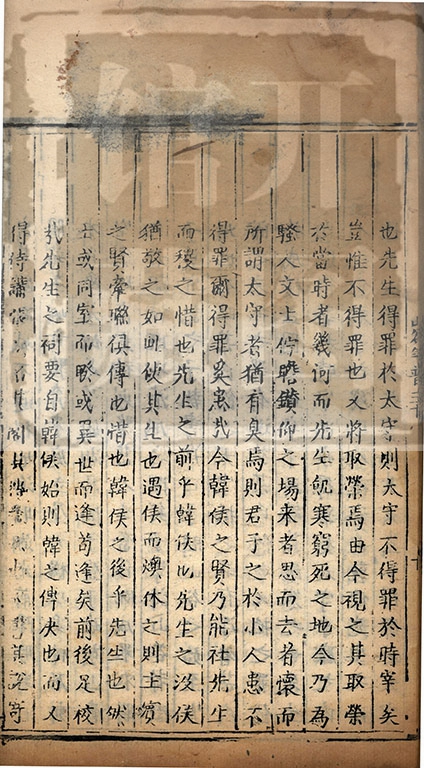 也先生得罪於太守則太守不得罪於時宰矣
豈惟不得罪也又將取榮焉由今視之其取榮
於當時者幾何而先生飢寒窮死之地今乃為
騷人文士佇瞻鑽仰之場来者思而去者懷而
所謂太守者猶有臭焉則君子之於小人患不
得罪爾得罪奚患哉今韓侯之賢乃能社先生
而稷之惜也先生之前乎韓侯以先生之沒侯
猶敬之如此使其生也遇侯而燠休之則主賓
之賢牽聯俱傳也惜也韓侯之後乎先生也然
士或同室而睽或異世而逢苟逢矣前後足校
哉先生之祠要自韓侯始則韓之傳決也而又
得待講